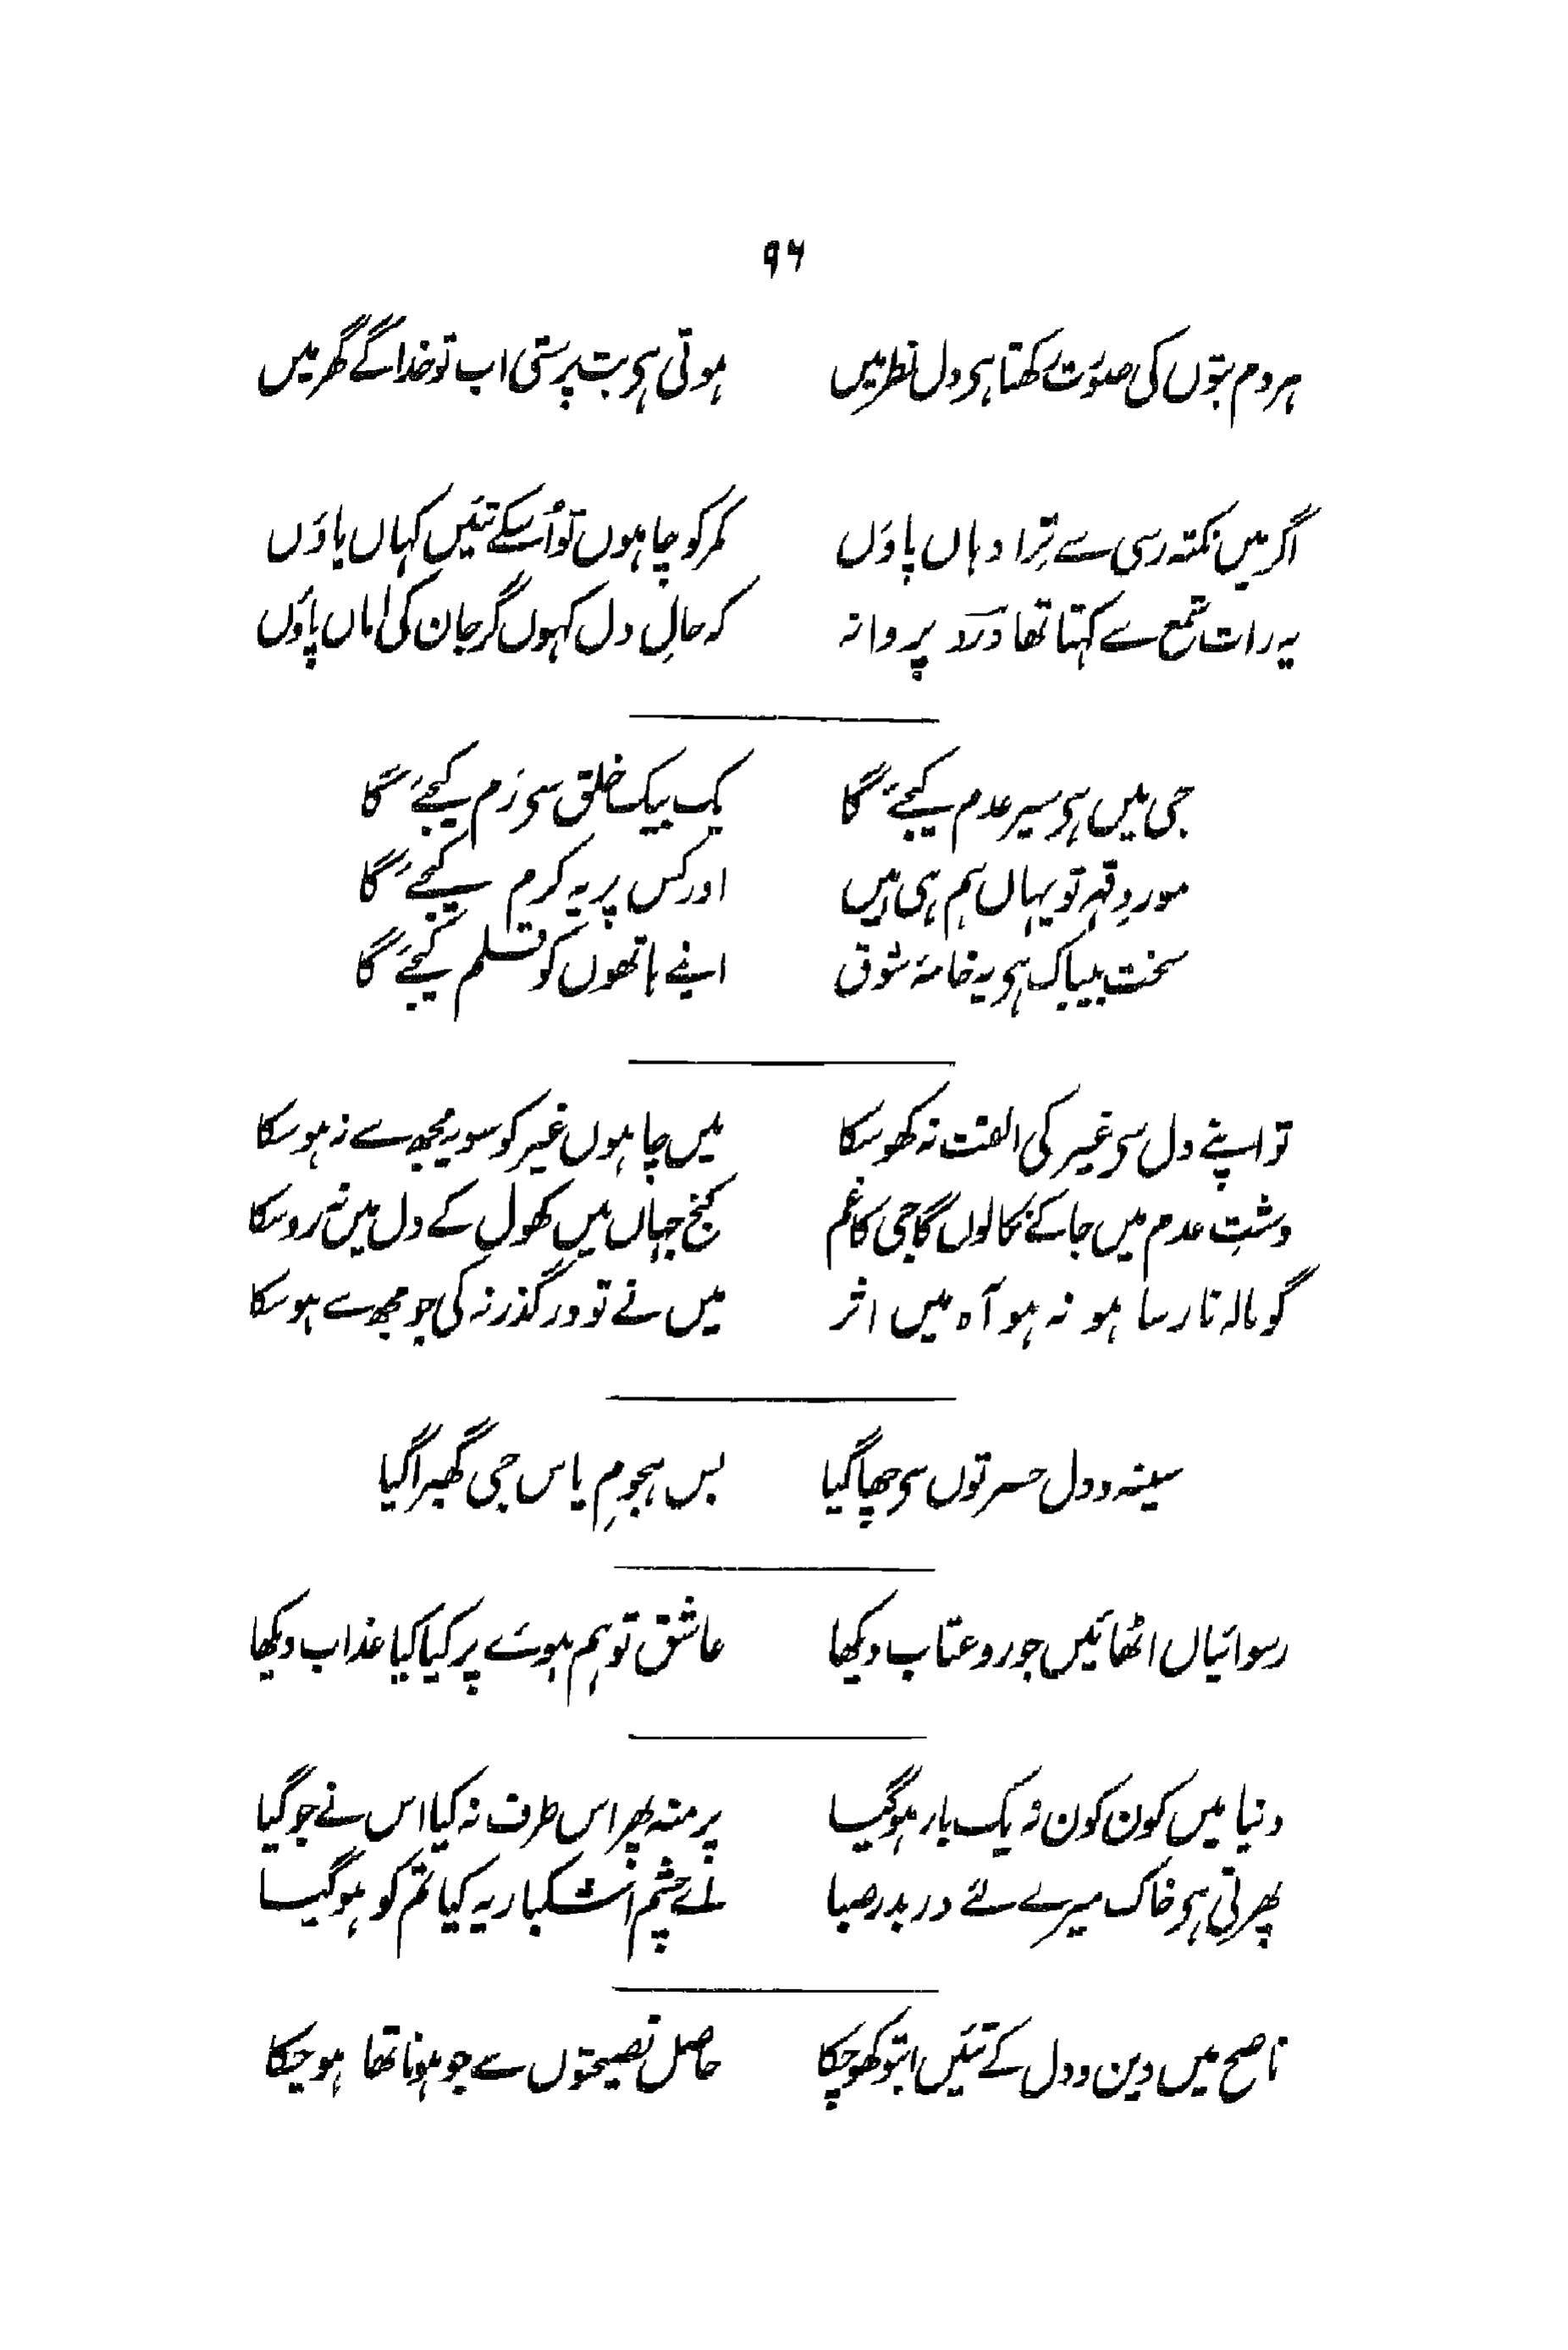 ۹۶
ہر دم بتوں کی صورت رکھتا ہی دل نظر میں ہوتی ہی بت پرستی اب تو خدا کے گھر میں
اگر میں نکتہ رسی سے ترا دہاں پاؤں کمر کو چاہوں تو اُسکے تئیں کہاں پاؤں
یہ رات شمع سے کہتا تھا درد پروانہ کہ حالِ دل کہوں گر جان کی اماں پاؤں
جی میں ہی سیر عدم کیجئے گا یک بیک خلق سی رَم کیجئے گا
موردِ قہر تو یہاں ہم ہی ہیں اور کس پر یہ کرم کیجئے گا
سخت بیباک ہی یہ خامۂ شوق اپنے ہاتھوں کو قلم کیجئے گا
تو اپنے دل سی غیر کی الفت نہ کھو سکا میں چاہوں غیر کو سو یہ مجھ سے نہ ہو سکا
دشتِ عدم میں جا کے نکالوں گا جی کا غم کنج جہاں میں کھول کے دل میں نہ رو سکا
گو نالہ نارسا ہو نہ ہو آہ میں اثر میں نے تو درگذر نہ کی جو مجھ سے ہو سکا
سینہ و دل حسرتوں سی چھا گیا بس ہجومِ یاس جی گھبرا گیا
رسوائیاں اٹھائیں جور و عتاب دیکھا عاشق تو ہم ہوئے پر کیا کیا عذاب دیکھا
دنیا میں کون کون نہ یک بار ہو گیا پر منہ پھر اس طرف نہ کیا اس نے جو گیا
پھرتی ہی خاک میرے لئے در بدر صبا اے چشم اشکبار یہ کیا تم کو ہو گیا
ناصح میں دین و دل کے تئیں ابتو کھو چکا حاصل نصیحتوں سے جو ہونا تھا ہو چکا